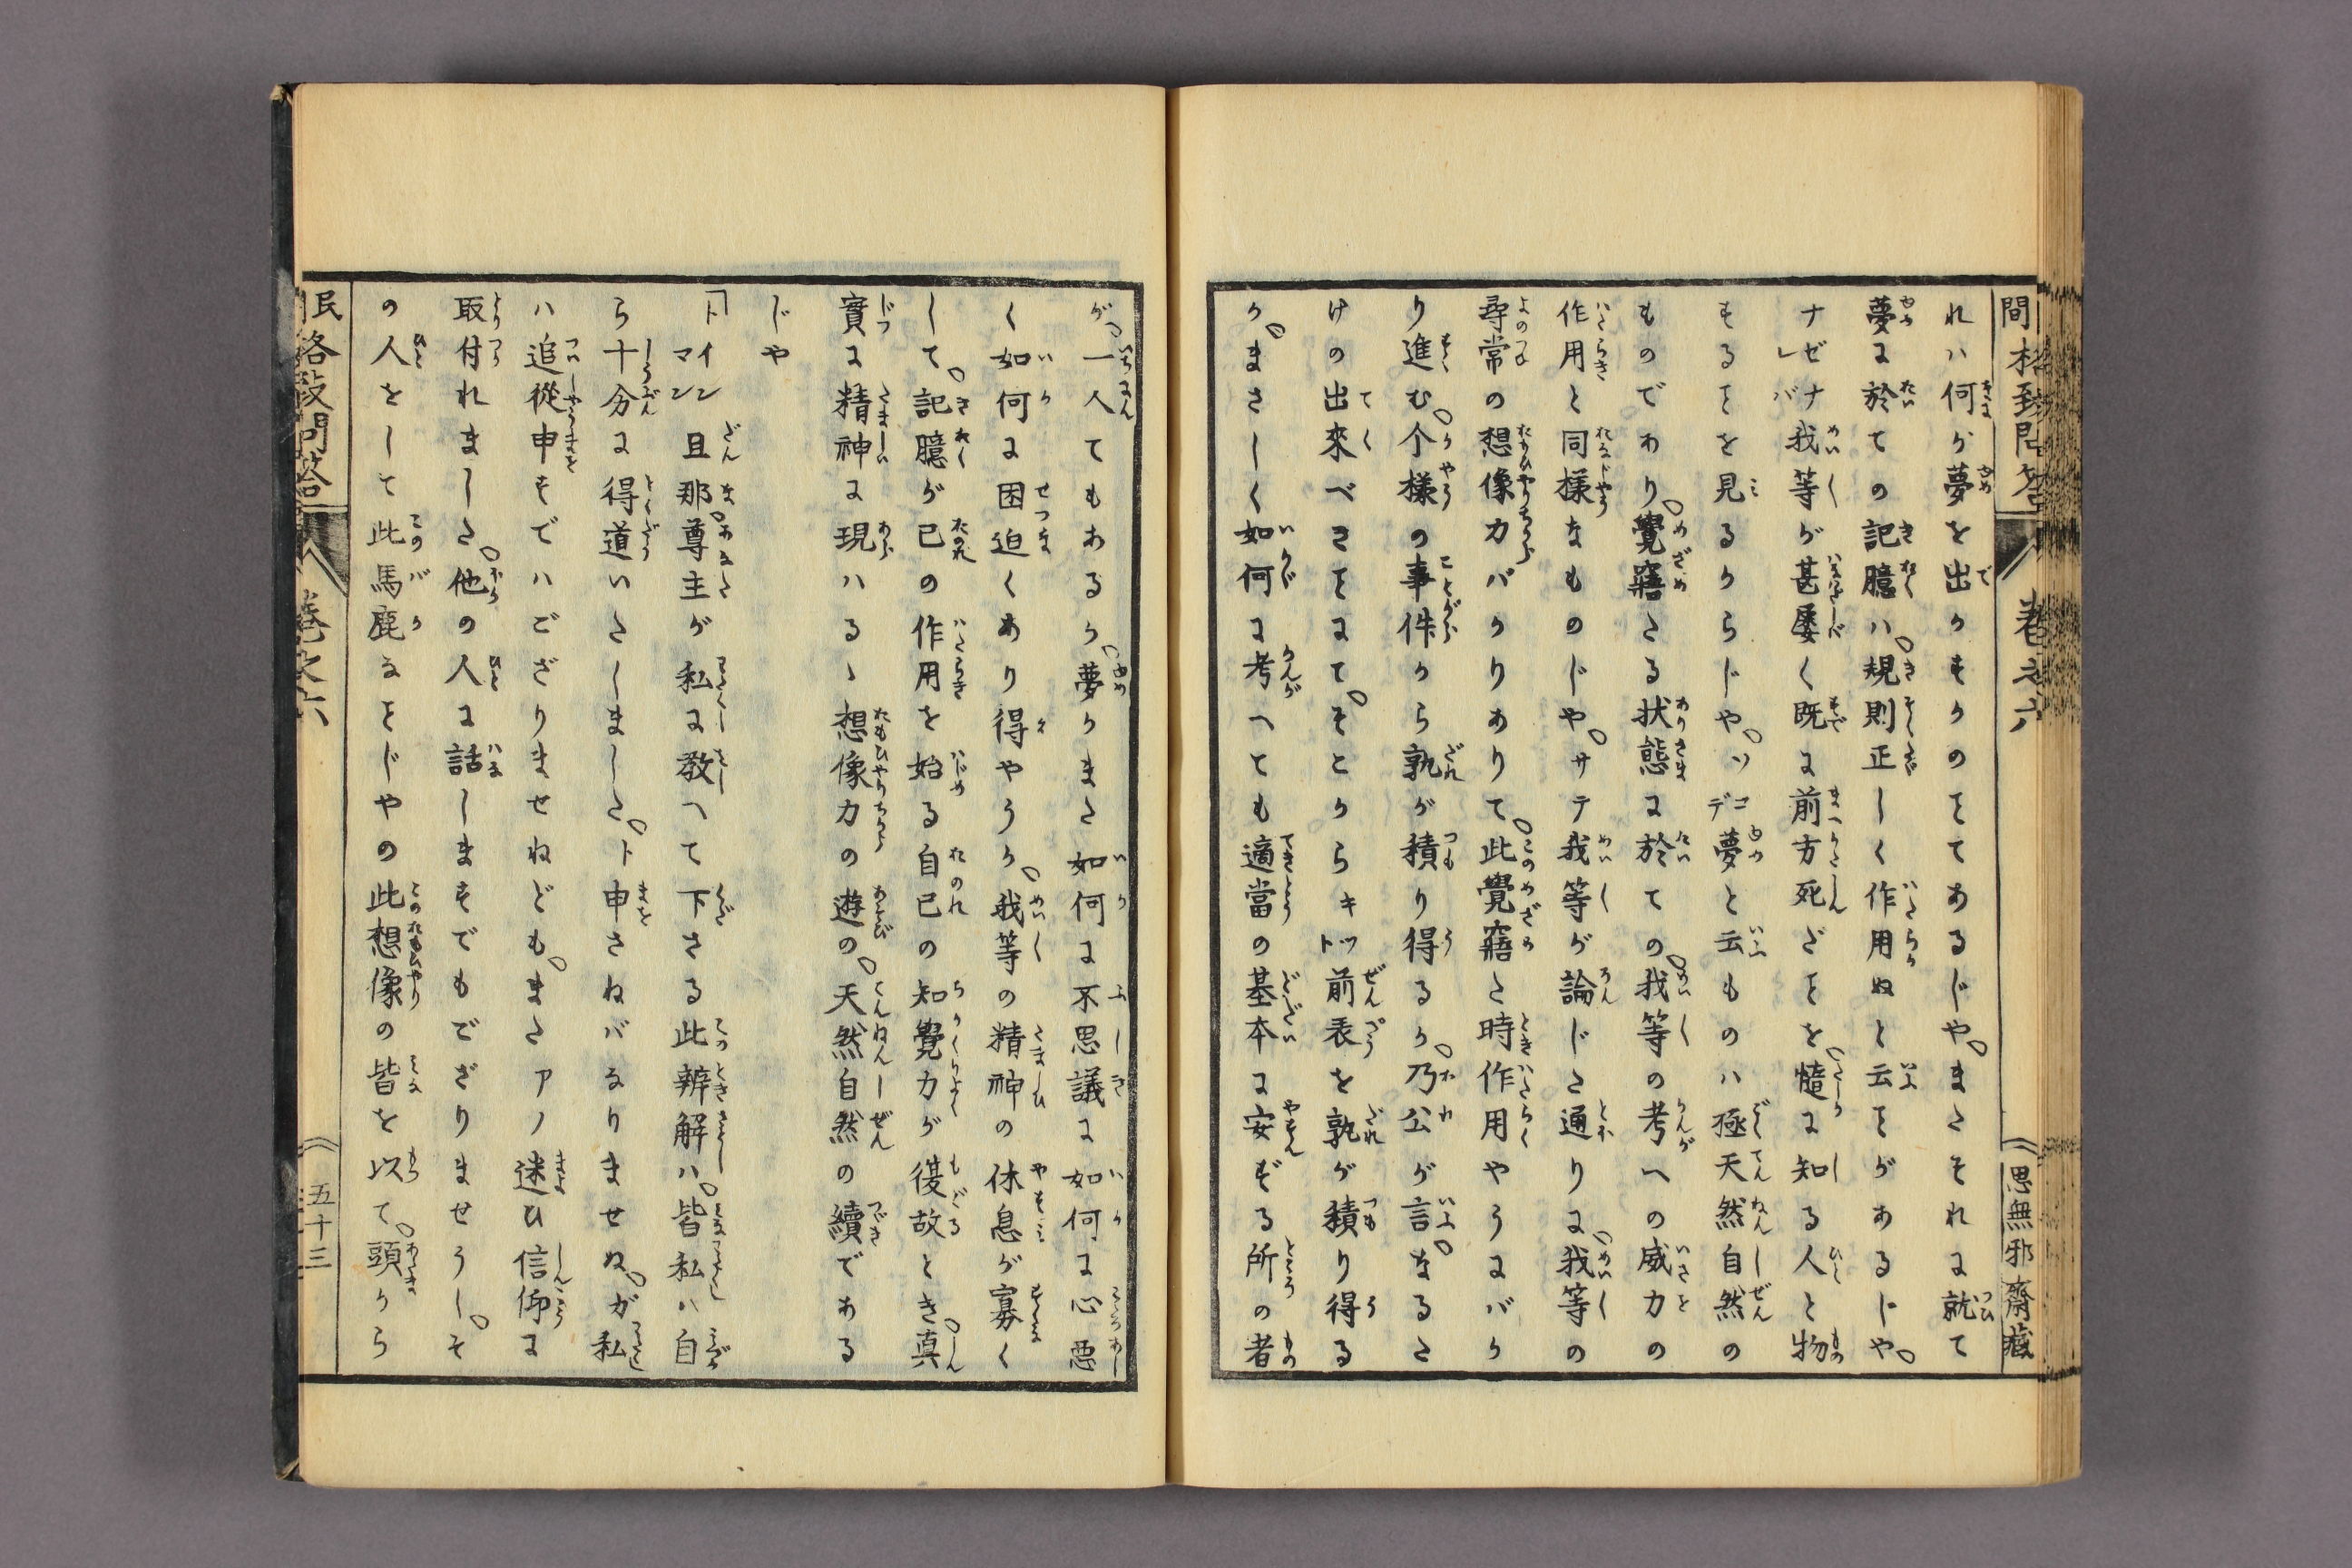 れハ何が夢を出かもかのとてあるじや。またそれに就て
夢に於ての記臆ハ。規則正しく作用ぬと云とがあるじや。
ナゼナレバ我等が甚屡く既に前方死ざとを。慥に知る人と物
もるとを見るからじや。ソコデ夢と云ものハ極天然自然の
ものでわり。覺寤たる状態に於ての。我等の考への威力の
作用と同様なものじや。サテ我等が論じた通りに。我等の
尋常の想像力バかりありて。此覺寤た時作用やうにバか
り進む。个様の事件から孰が積り得るか。乃公が言。なるた
けの出來べきとにて。そとからキット前表を孰が積り得る
か。まさしく如何に考へても適當の基本に安ずる所の者
が。一人てもあるか。夢かまた如何に不思議に如何に心悪
く如何に困迫くあり得やうか。我等の精神の休息が寡く
して。記臆が已の作用を始る自已の知覺力が復故とき。真
實に精神に現ハるゝ想像力の遊の。天然自然の續である
じや
「トインマン且那尊主が私に教へて下さる此辨解ハ。皆私ハ自
ら十分に得道いたしました。ト申さねバなりませぬ。が私
ハ追從申もでハござりませねども。またアノ迷ひ信仰に
取付れました。他の人に話しまもでもでざりませうし。そ
の人をして此馬鹿なとじやの此想像の皆を以て。頭から
思無邪齋藏
卷之六
五十三